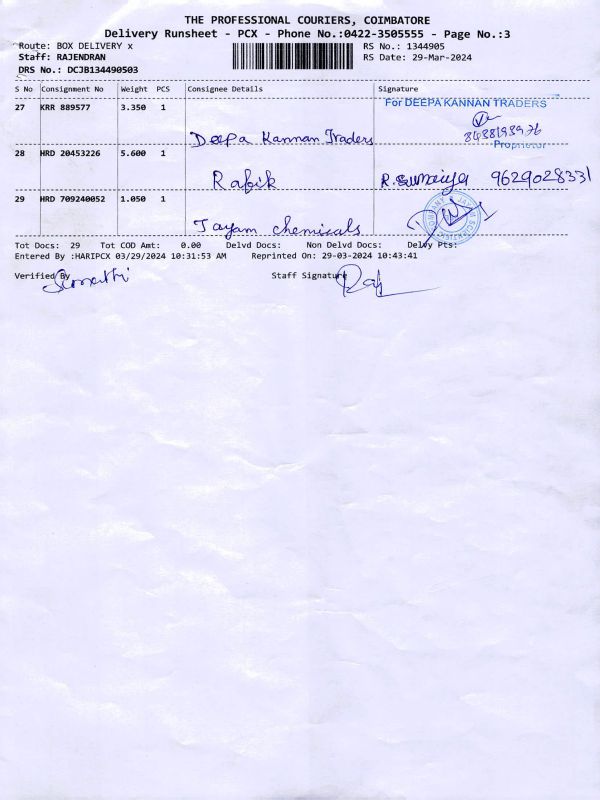 THE PROFESSIONAL COURIERS, COIMBATORE
Delivery Runsheet - PCX - Phone No.:0422-3505555 - Page No.:3
Route: BOX DELIVERY x RS No.: 1344905
Staff: RAJENDRAN RS Date: 29-Mar-2024
DRS No.: DCJB134490503
S No Consignment No Weight PCS Consignee Details Signature
27 KRR 889577 3.350 1 For DEEPA KANNAN TRADERS
Deepa Kannan Traders
Proprietor
28 HRD 20453226 5.600 1
Rafik R. Sumaiya 9629028331
29 HRD 709240052 1.050 1
Jayam chemicals
Tot Docs: 29 Tot COD Amt: 0.00 Delvd Docs: Non Delvd Docs: Delvy Pts:
Entered By :HARIPCX 03/29/2024 10:31:53 AM Reprinted On: 29-03-2024 10:43:41
Verified By Staff Signature